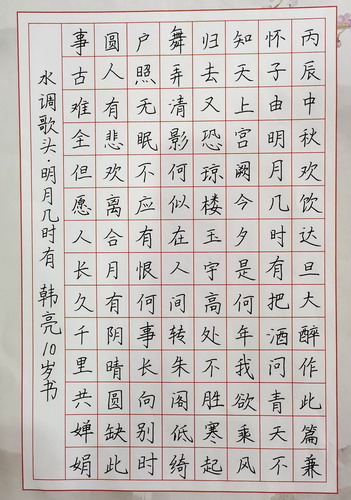 丙辰中秋欢饮达旦大醉作此篇兼
怀子由明月几时有把酒问青天不
知天上宫阙今夕是何年我欲乘风
归去又恐琼楼玉宇高处不胜寒起
舞弄清影何似在人间转朱阁低绮
户照无眠不应有恨何事长向别时
圆人有悲欢离合月有阴晴圆缺此
事古难全但愿人长久千里共婵娟
水调歌头·明月几时有 韩亮10岁书